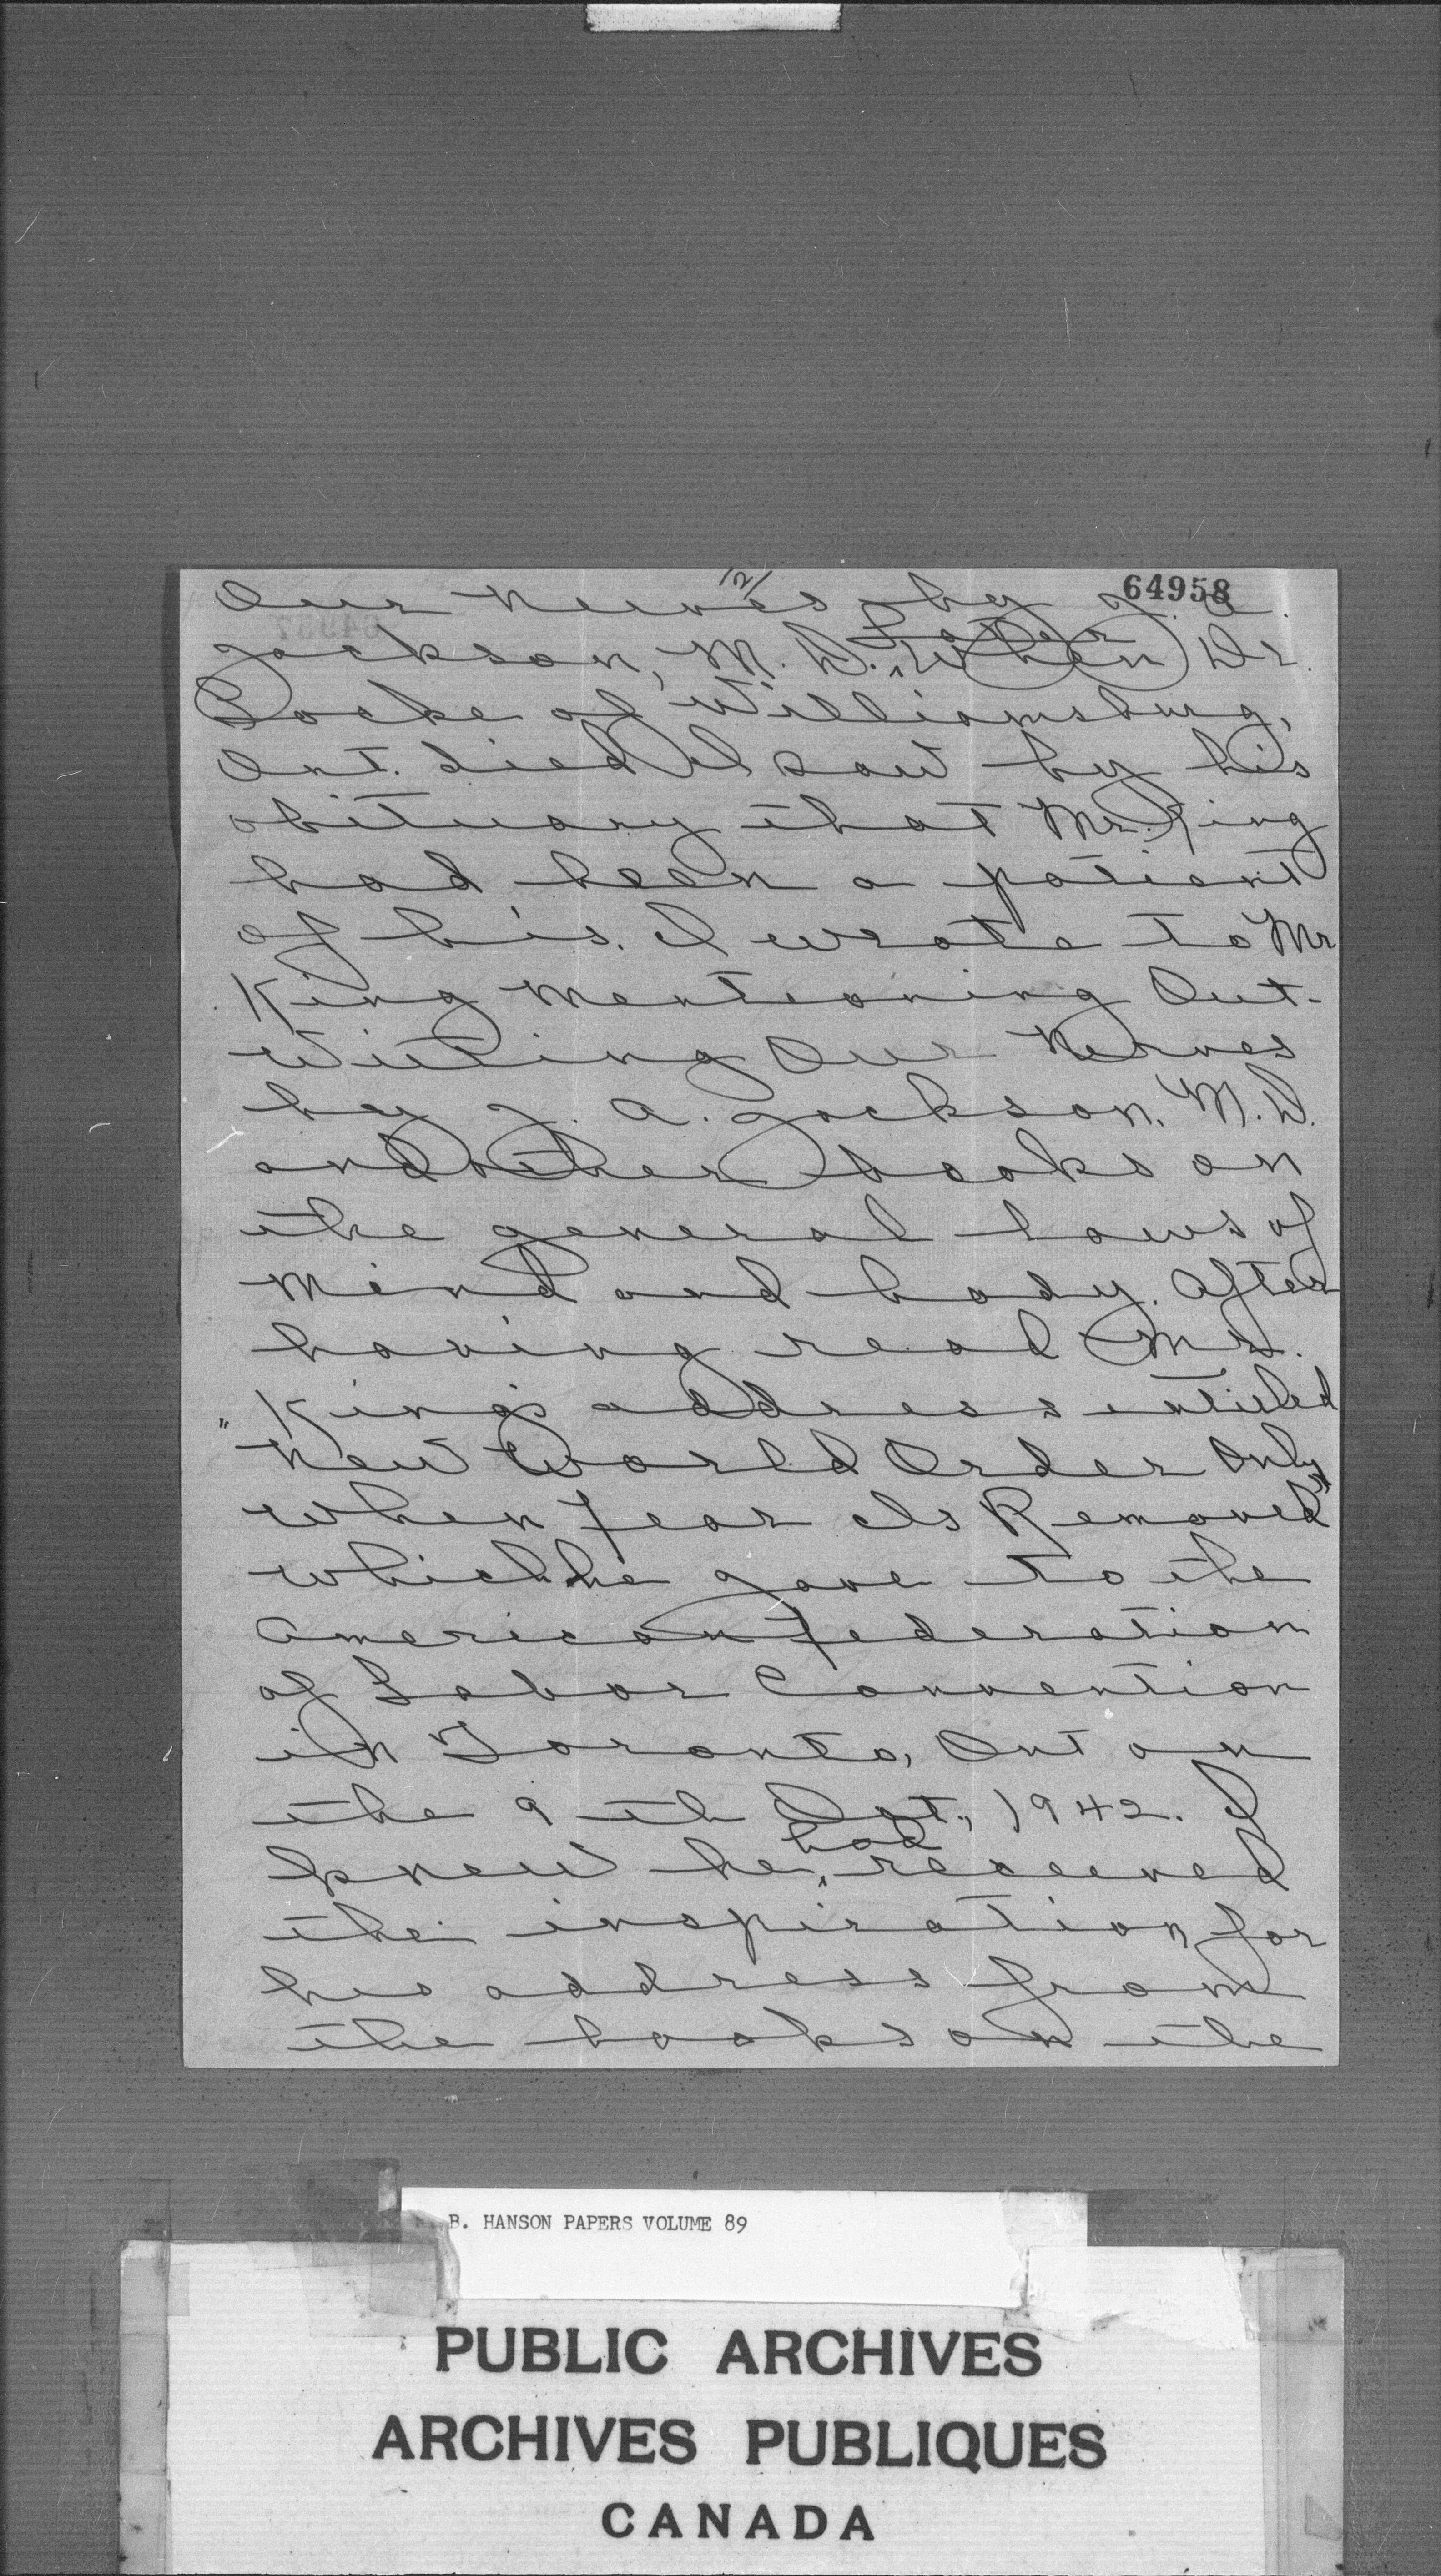 /2/
64958
Our Nerves by J. A.
Jackson, M. D. Later
when Dr.
Locke of Williamsburg,
Ont. died I saw by his
obituary that Mr. King
had been a patient
of his. I wrote to Mr
King mentioning Out-
witting Our Nerves
by J. A. Jackson. M. D.
and other books on
the general laws of
mind and body. After
having read Mr.
King's address entitled
"New World Order Only
when Fear Is Removed"
which he gave to the
American Federation
of Labor Convention
in Toronto, Ont on
the 9 th Oct., 1942. I
knew he had received
the inspiration for
his address from
the books on the
B. HANSON PAPERS VOLUME 89
PUBLIC ARCHIVES
ARCHIVES PUBLIQUES
CANADA